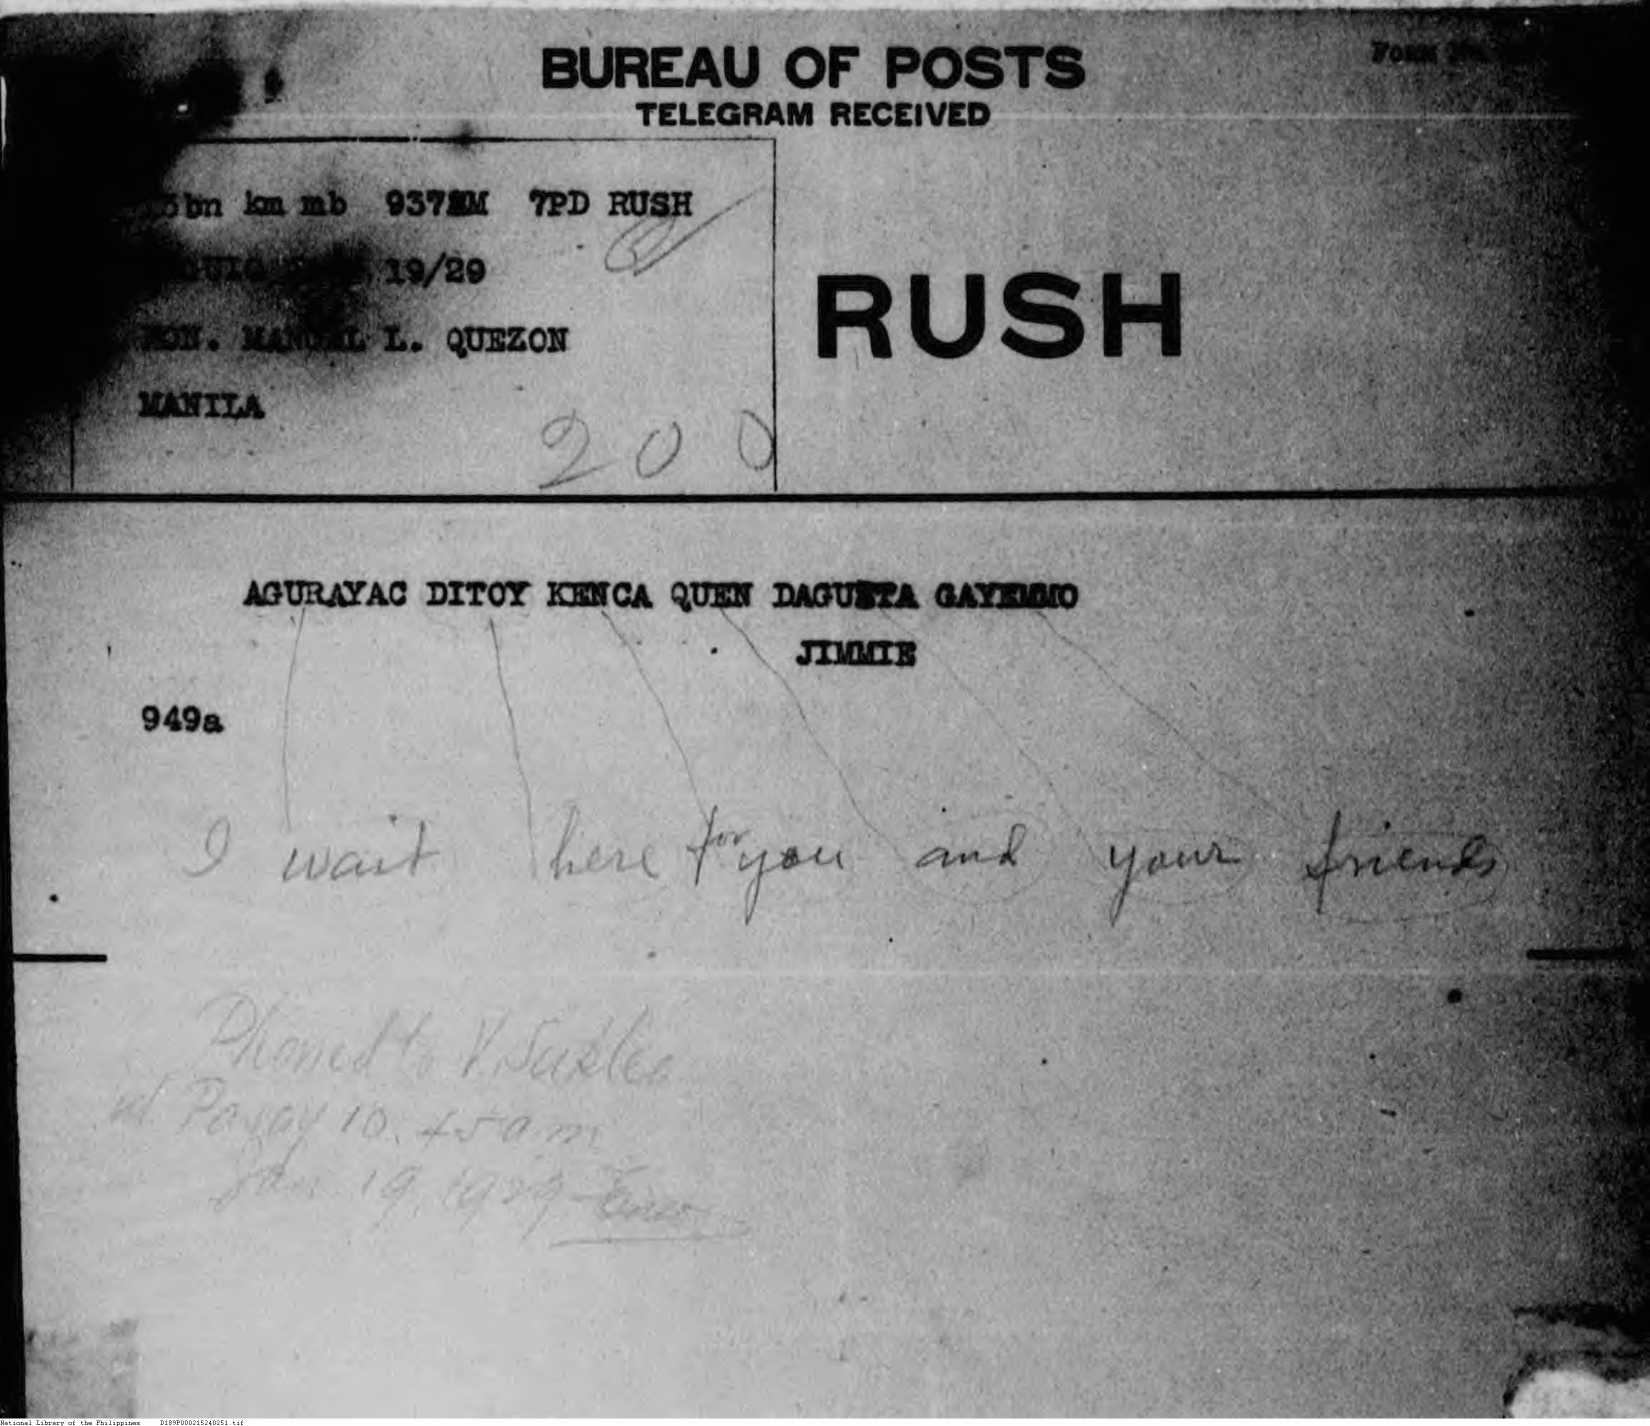 BUREAU OF POSTS
TELEGRAM RECEIVED
bn km mb 937 7PD RUSH
19/29
HON. MANUEL L. QUEZON
MANILA
200
RUSH
AGURAYAC DITOY KENCA QUEN GAYEMMO
JIMMIE
949a
I wait here for you and your friends
Phoned to
10.45 a.m
Jan 19, 1929
National Library of the Philippines D189P000215240251.tif